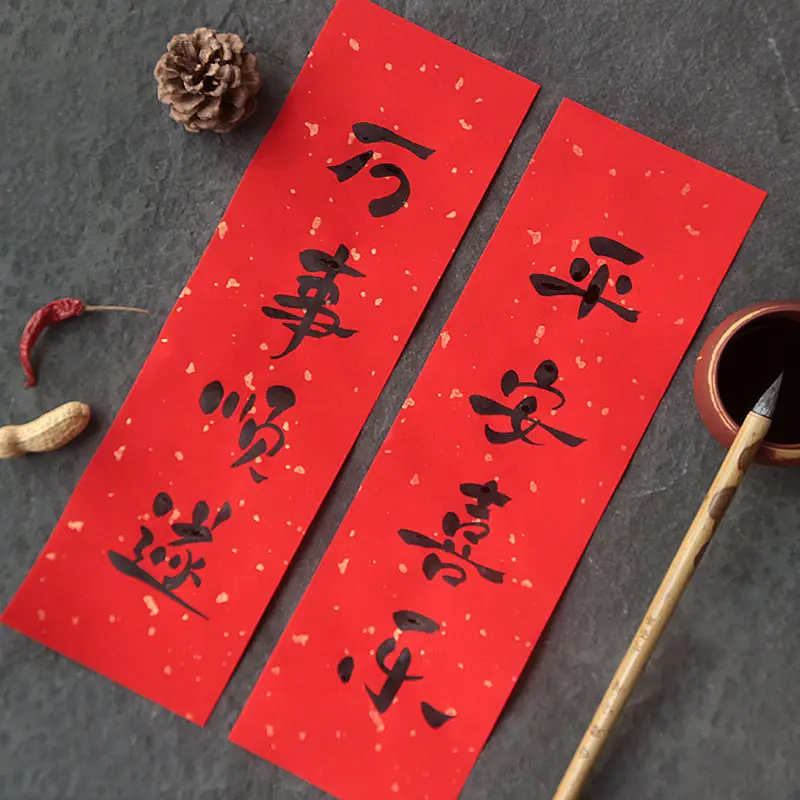 平安喜乐
万事顺遂